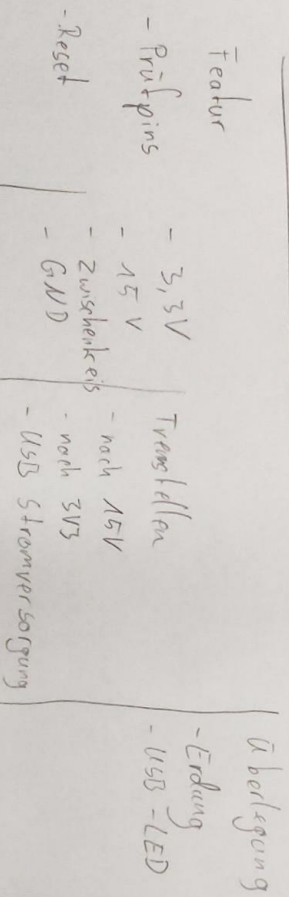 Featur
- Prüfpins
- Reset
- 3,3V
- 15V
- Zwischenkeis
- GND
Trennstellen
- nach 15V
- nach 3V3
- USB Stromversorgung
Überlegung
- Erdung
- USB-LED